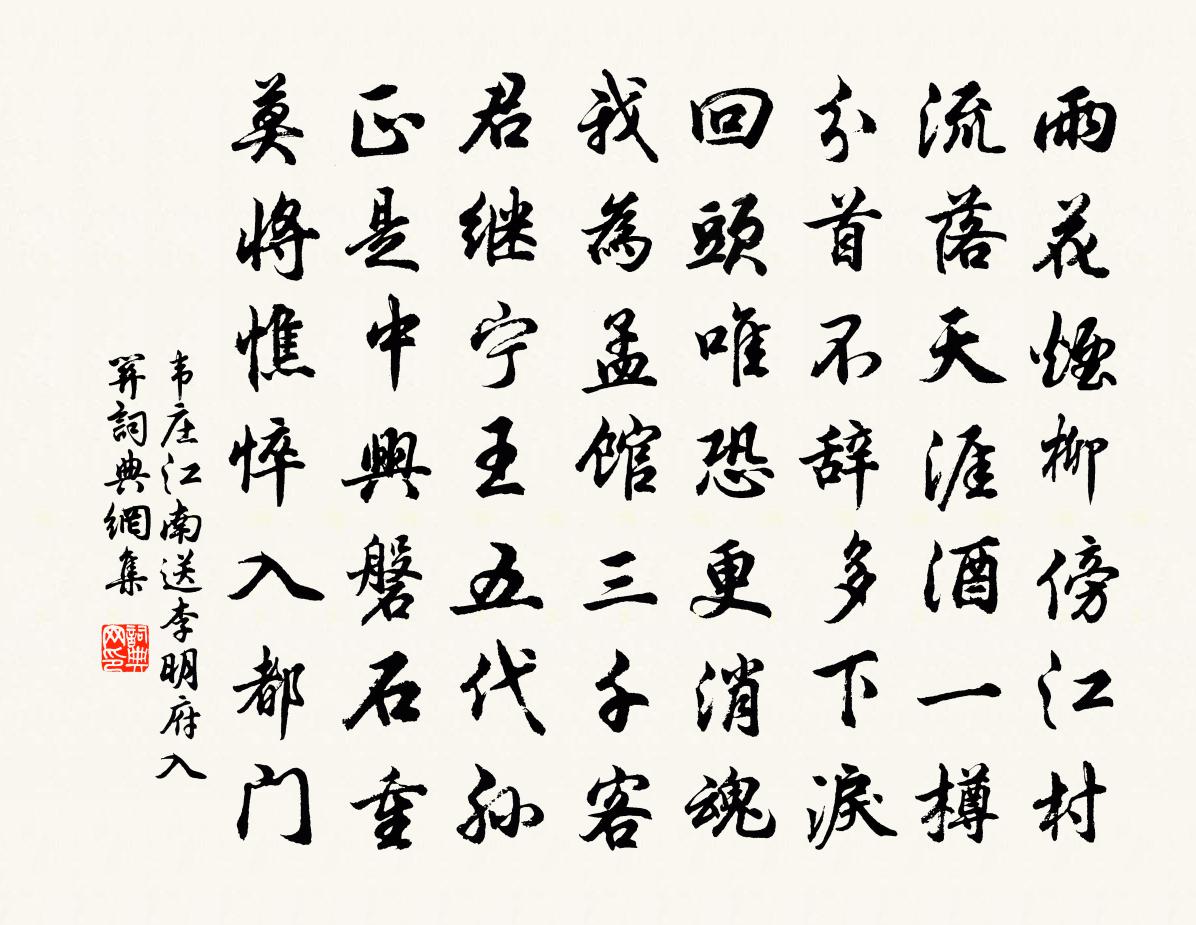 雨花煙柳傍江村
流落天涯酒一樽
分首不辞多下淚
回頭唯恐更消魂
我為孟馆三千客
君继宁王五代孙
正是中興磐石重
莫將憔悴入都门
韦庄江南送李明府入
關詞典網集
詞典网印